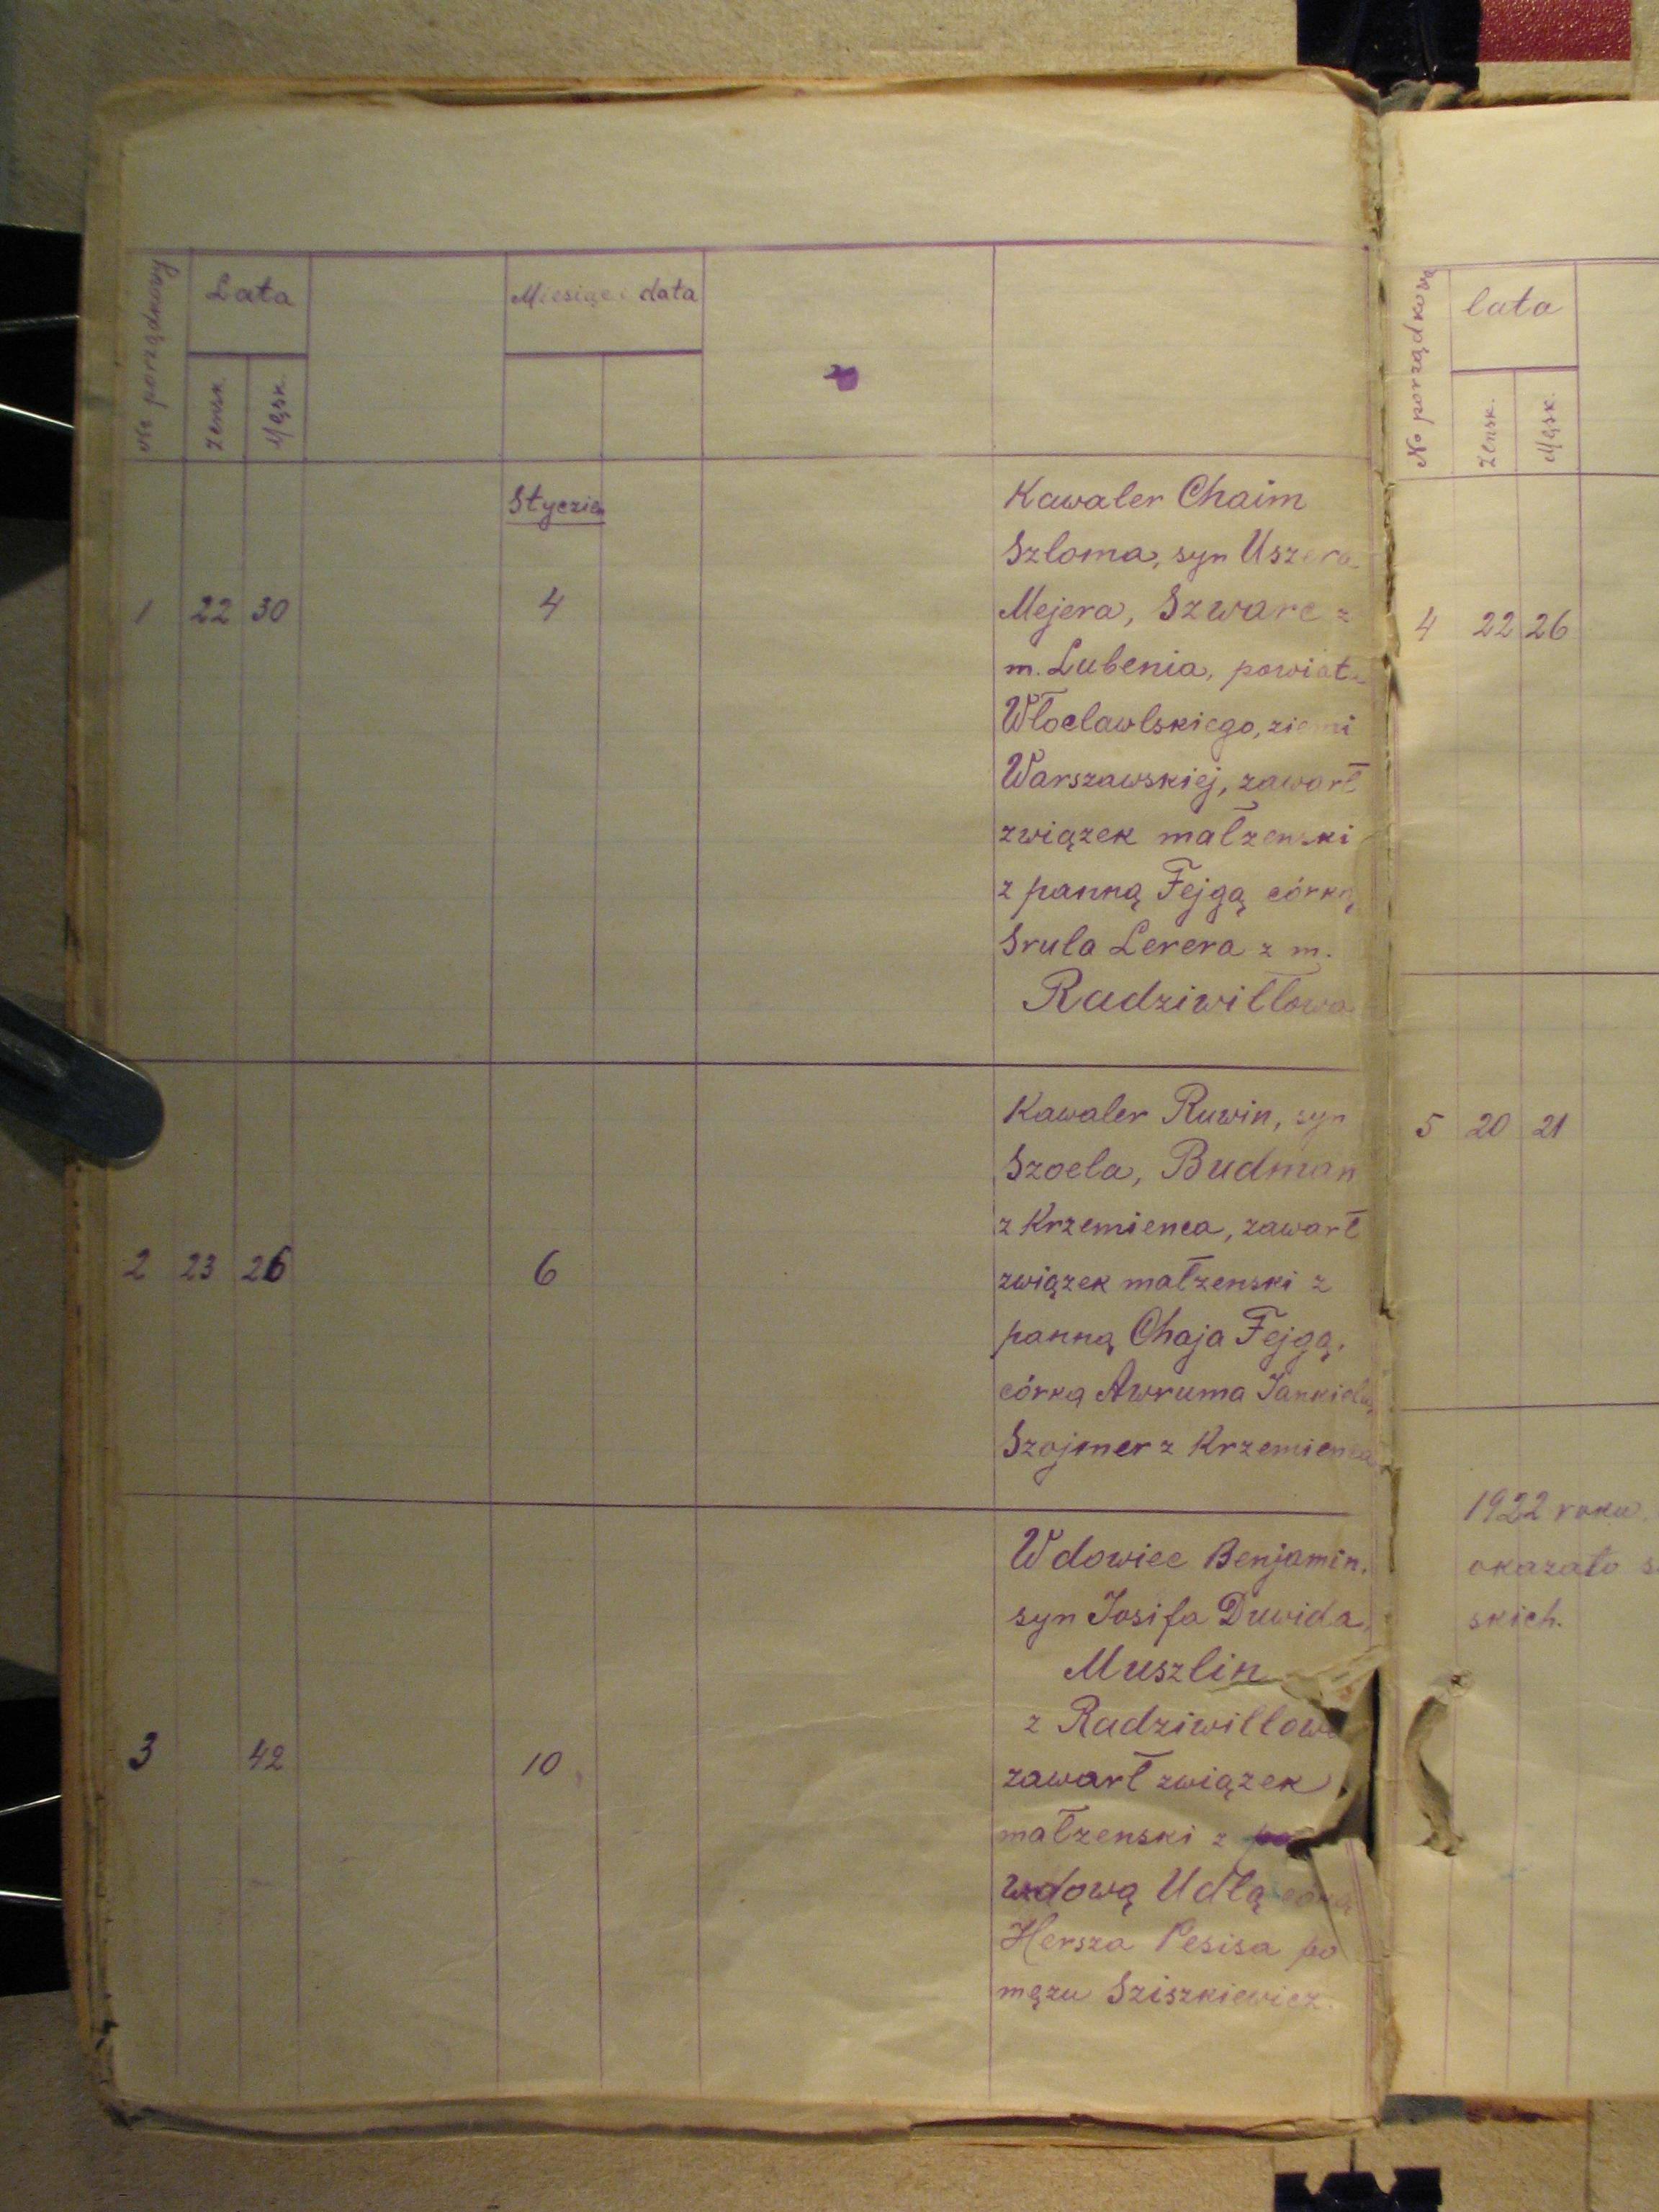 № porządkowy
Lata
Miesiąc i data
żensk.
Męsk.
Styczień
1 22 30 4
Kawaler Chaim
Szloma, syn Uszera
Mejera, Szwarc z
m. Lubenia, powiatu
Włoclawlskiego, ziemi
Warszawskiej, zawarł
związek małzenski
z panną Fejgą córką
Srula Lerera z m.
Radziwiłłowa
2 23 26 6
Kawaler Ruwin, syn
Szoela, Budman
z Krzemienca, zawarł
związek małzenski z
panną Chaja Fejgą,
córką Awruma Jankiela
Szojmer z Krzemienca
3 42 10
Wdowiec Benjamin,
syn Josifa Duwida,
Muszlin
z Radziwiłłowa
zawarł związek
małzenski z
wdową Udlą córką
Hersza Pesisa po
męzu Sziszkiewicz.
№ porządkowy
lata
żensk.
Męsk.
4 22 26
5 20 21
1922 roku.
okazało
skich.